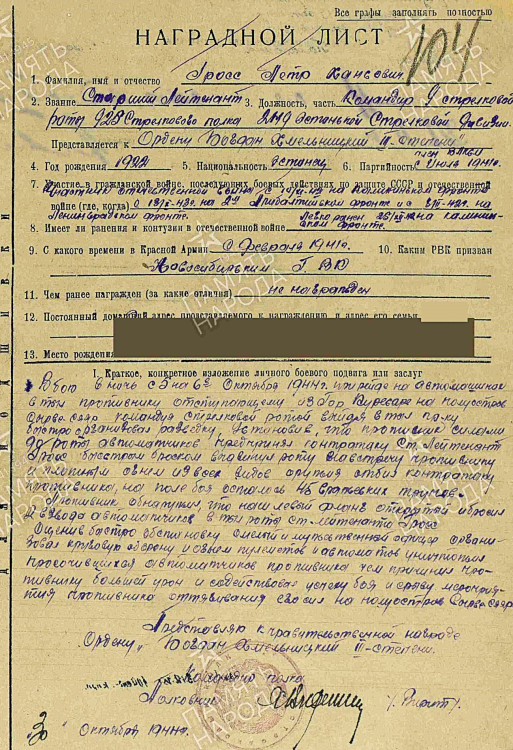 Все графы заполнять полностью
НАГРАДНОЙ ЛИСТ
104
1. Фамилия, имя и отчество Гросс Петр Хансович
2. Звание Старший Лейтенант 3. Должность, часть Командир стрелковой
роты 925 Стрелкового полка 249 Эстонской Стрелковой Дивизии
Представляется к Ордену Богдан Хмельницкий III степени
4. Год рождения 1922 5. Национальность Эстонец 6. Партийность член ВЛКСМ
с Июля 1941г.
7. Участие в гражданской войне, последующих боевых действиях по защите СССР и отечественной
войне (где, когда)
Ленинградском фронте.
8. Имеет ли ранения и контузии в отечественной войне Легко ранен на калинин-
ском фронте.
9. С какого времени в Красной Армии с Февраля 1941г. 10. Каким РВК призван
Новосибирским Г.ВК
11. Чем ранее награжден (за какие отличия) не награжден
12. Постоянный домашний адрес представляемого к награждению и адрес его семьи
13. Место рождения
I. Краткое, конкретное изложение личного боевого подвига или заслуг
В бою в ночь с 5 на 6е Октября 1944г. на автомашинах
в тыл противнику отступающему из гор Курессаре на полуостров
Сырве-Сяэр командуя стрелковой ротой выйдя в тыл полку
быстро организовал разведку, Установив, что противник силами
до роты автоматчиков предпринял контратаку Ст. Лейтенант
Гросс быстрым броском роту навстречу противнику
и плотным огнем из всех видов оружия отбил контратаку
противника, на поле боя осталось 45 вражеских трупов.
Противник обнаружил, что наш левый фланг открытый бросил
2 взвода автоматчиков в тыл роты ст. лейтенанта Гросс.
Оценив быстро обстановку смелый и мужественный офицер органи-
зовал круговую оборону и огнем пулеметов и автоматов уничтожил
просочившихся автоматчиков противника чем причинил про-
тивнику большой урон и содействовал успеху боя и срыву мероприя-
тия противника оттягивания своих на полуостров Сырве-Сяэр
Представляю к правительственной награде
Ордену "Богдан Хмельницкий III-степени.
Командир полка
Полковник
"30" Октября 1944г.
ПАМЯТЬ НАРОДА